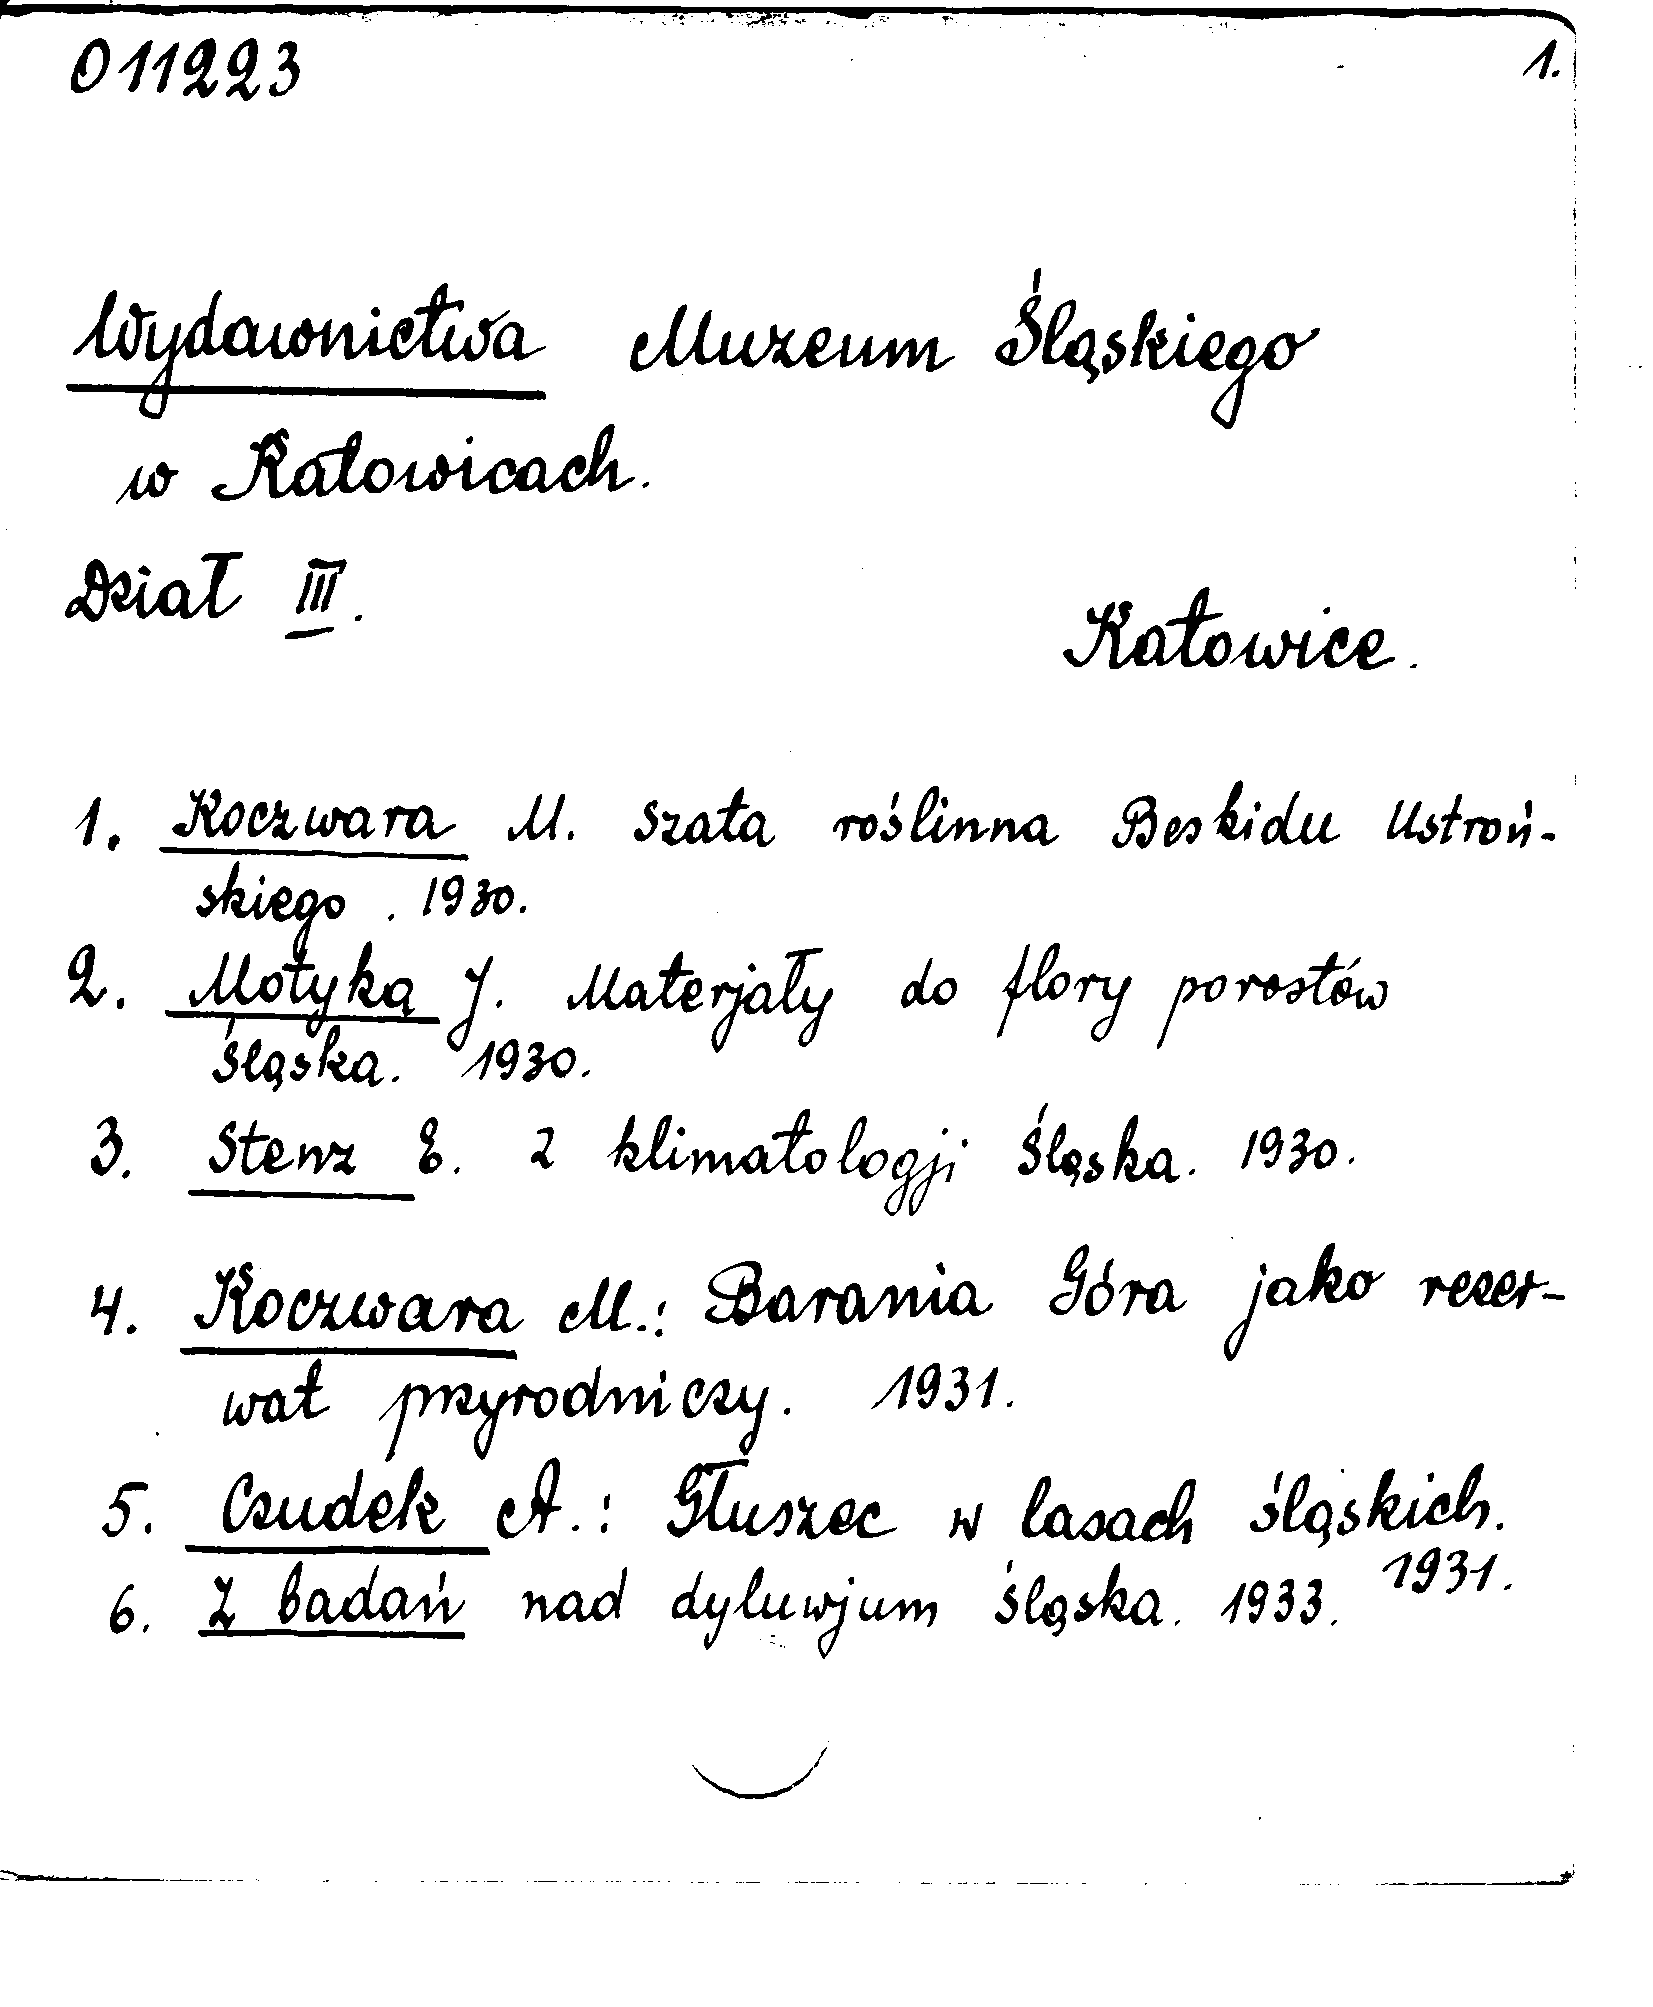 011223
1.
Wydawnictwa Muzeum Śląskiego
w Katowicach.
Dział III.
Katowice.
1. Koczwara M. Szata roślinna Beskidu Ustroń-
skiego. 1930.
2. Motyka J. Materjały do flory porostów
Śląska. 1930.
3. Stenz E. Z klimatologji Śląska. 1930.
4. Koczwara M.: Barania Góra jako rezer-
wat przyrodniczy. 1931.
5. Czudek A.: Głuszec w lasach śląskich.
1931.
6. Z badań nad dyluwjum śląska. 1933.